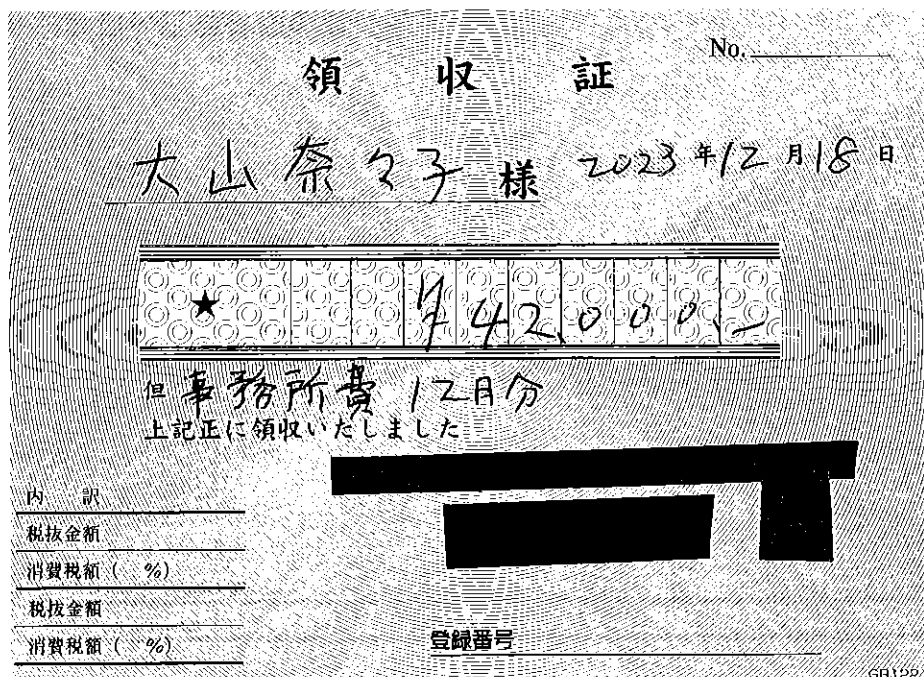 No.
領収証
大山奈々子様 2023年12月18日
★ ¥42,000.-
但 事務所費 12月分
上記正に領収いたしました
内訳
税抜金額
消費税額( %)
税抜金額
消費税額( %)
登録番号